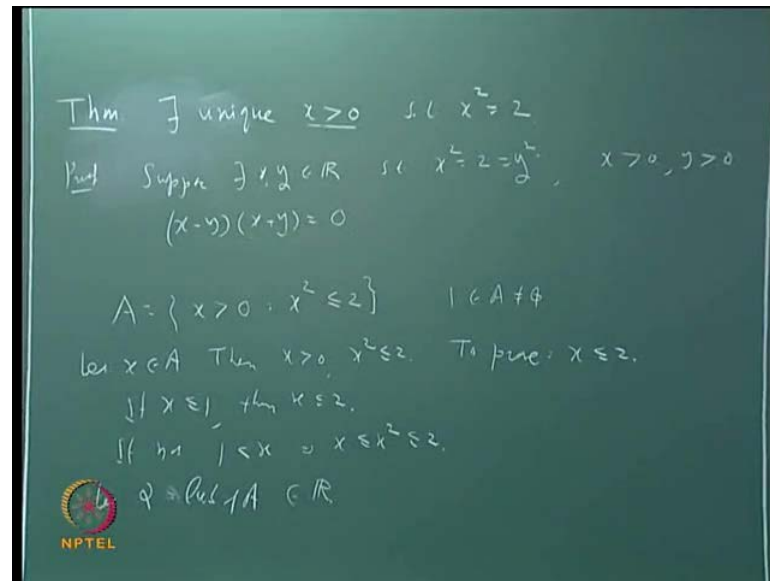 Thm ∃ unique x > 0 s.t x² = 2
Proof Suppose ∃ x, y ∈ ℝ s.t x² = 2 = y², x > 0, y > 0
(x-y)(x+y) = 0
A = { x > 0 : x² ≤ 2 } 1 ∈ A ≠ ϕ
Let x ∈ A Then x > 0, x² ≤ 2. To prove: x ≤ 2.
If x ≤ 1, then x ≤ 2.
If not 1 < x ⇒ x ≤ x² ≤ 2.
Let α = lub of A ∈ ℝ.
NPTEL